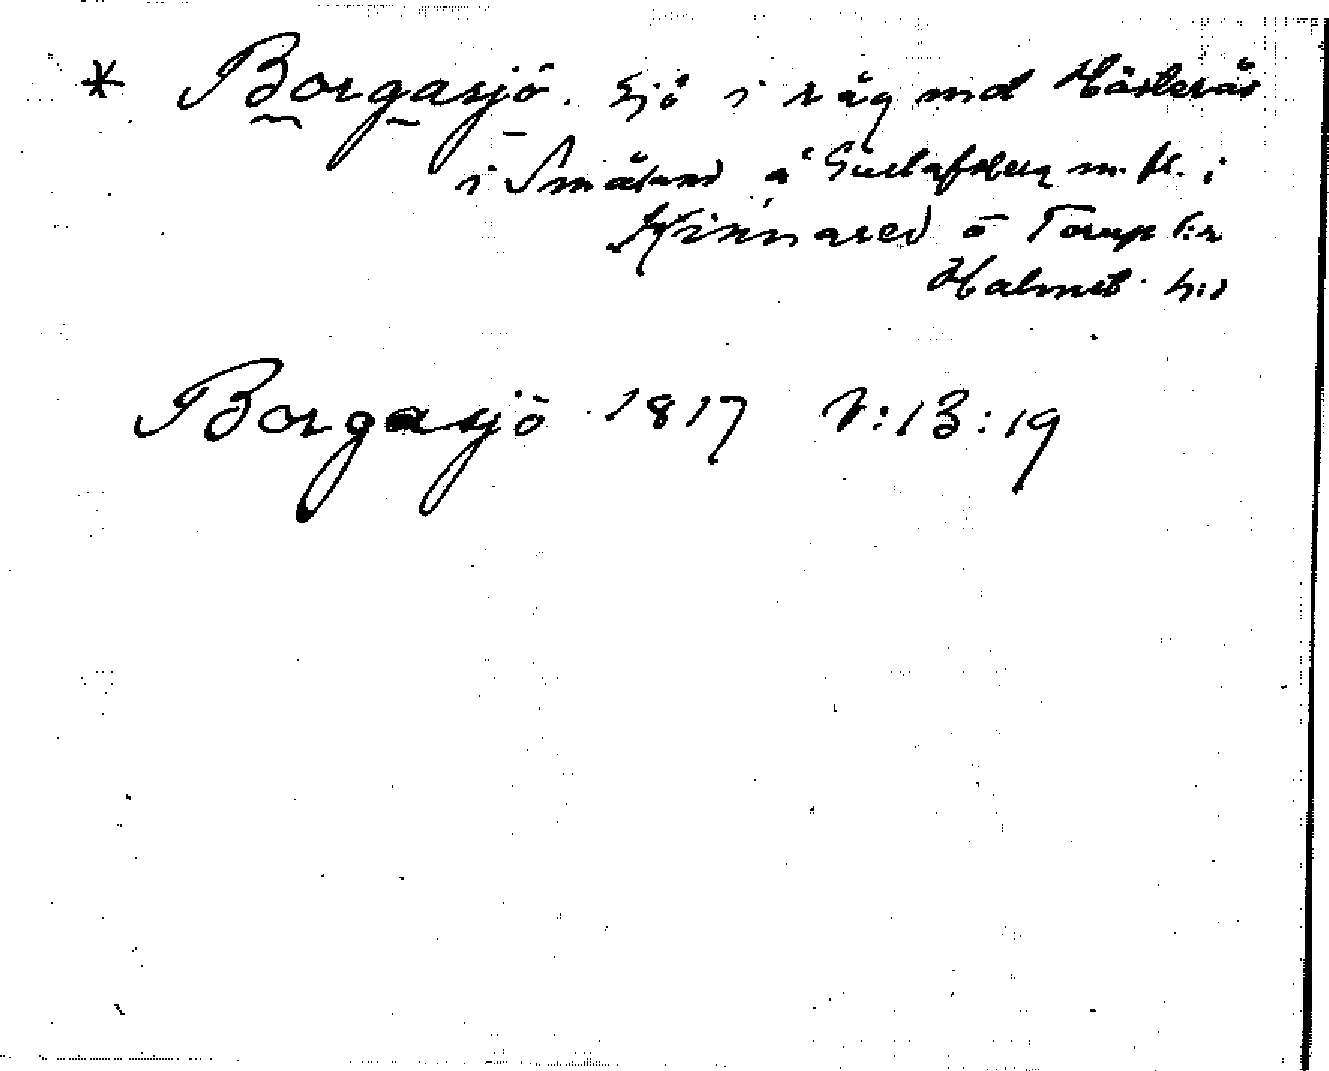 * Borgasjö. Sjö i räg md Hästerås
i Småland å Gustafsberg m. fl. i
Kinnared o Torup s:r
Halmst. h:d
Borgasjö 1817 V:13:19